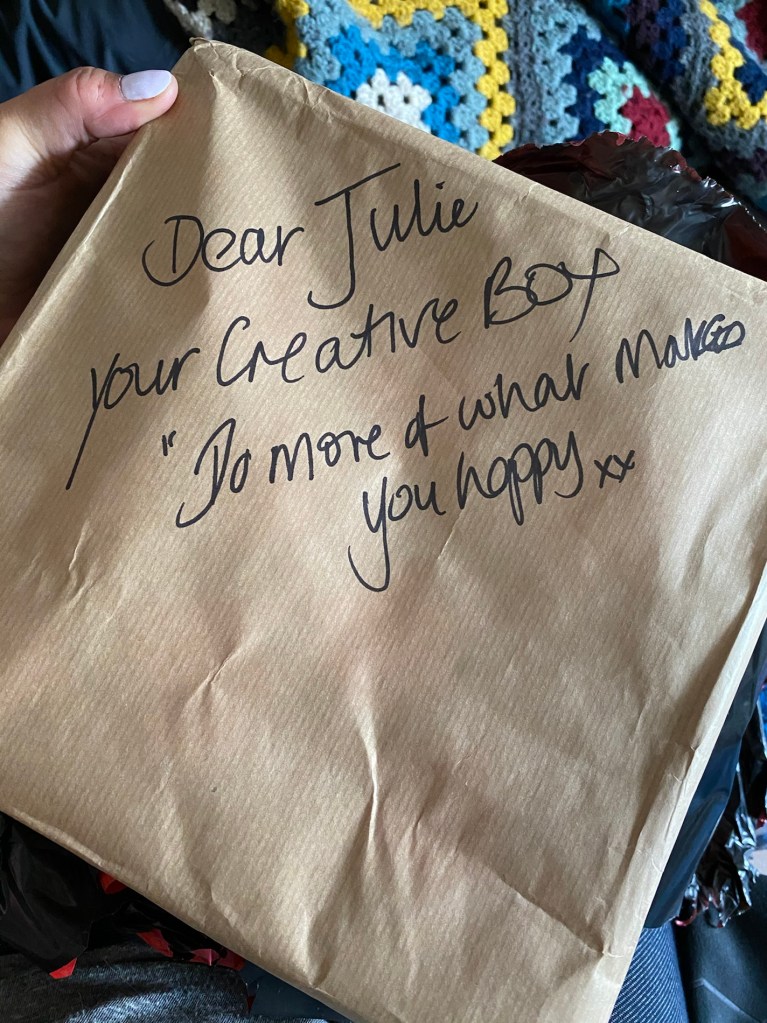 Dear Julie
your Creative Box
"Do more of what makes
you happy xx